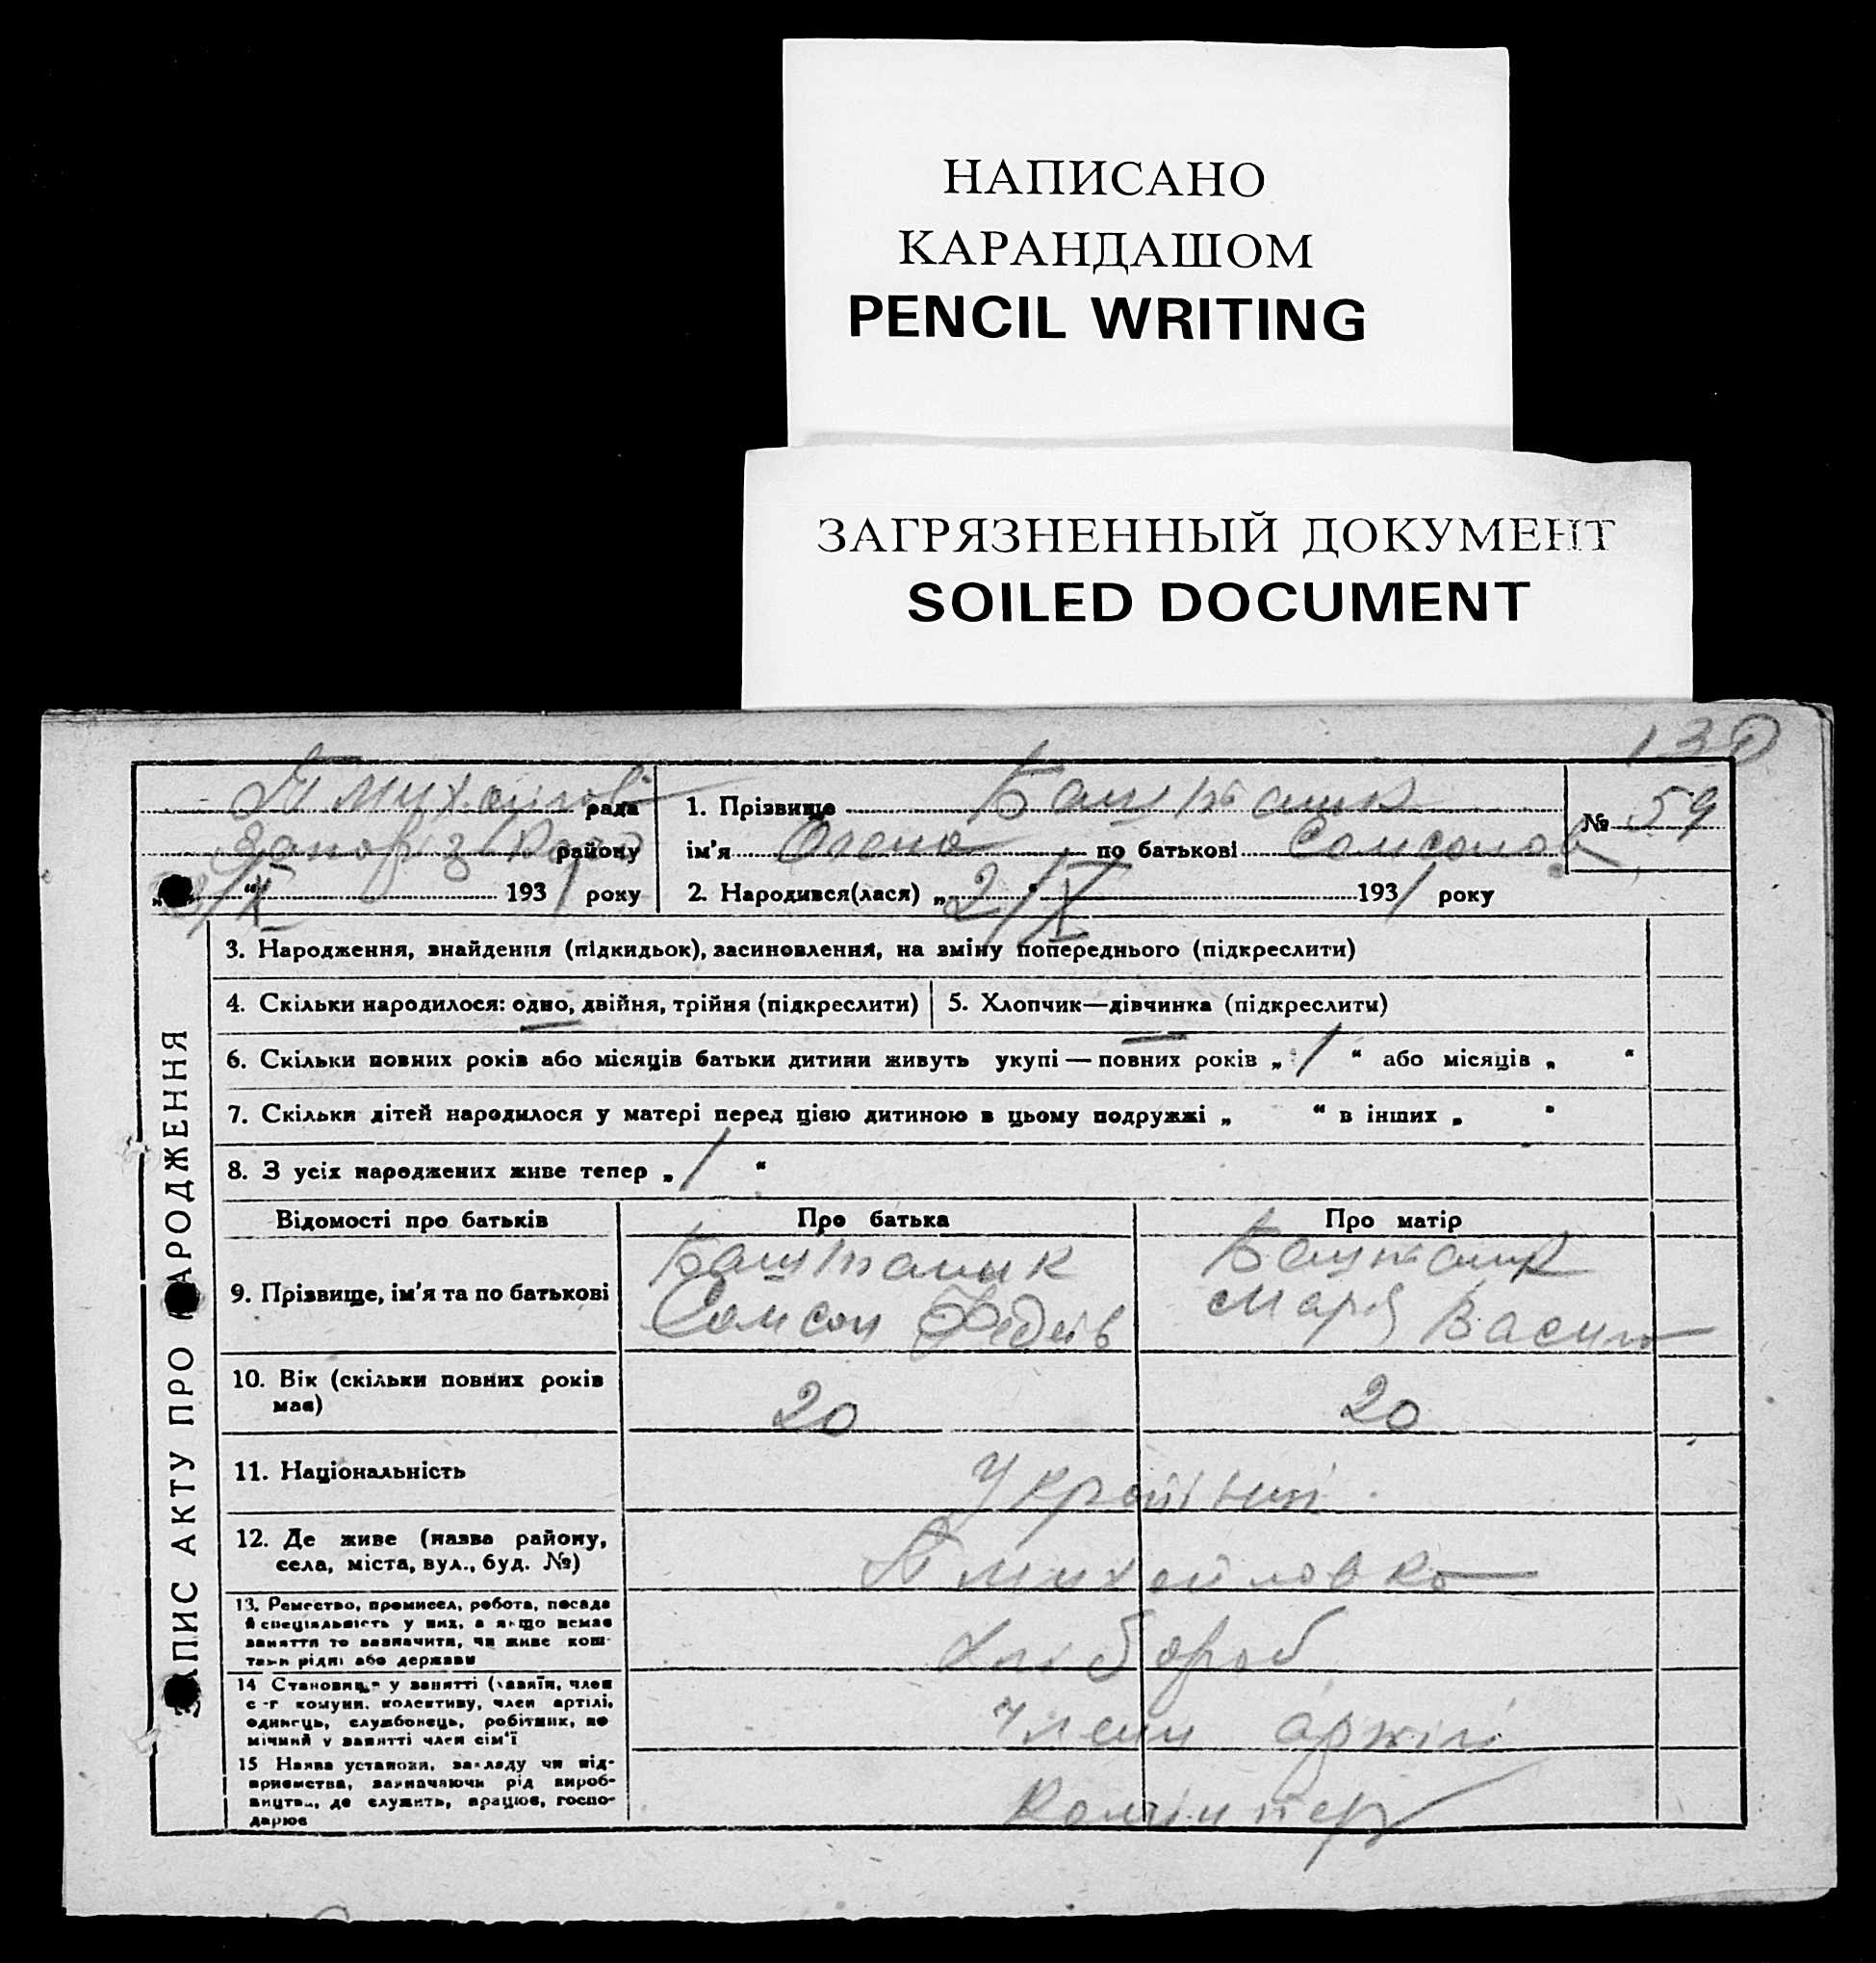 НАПИСАНО
КАРАНДАШОМ
PENCIL WRITING
ЗАГРЯЗНЕННЫЙ ДОКУМЕНТ
SOILED DOCUMENT
рада
району
1931 року
1. Прізвище Баштаник
ім'я Олена по батькові Самсонов
2. Народився(лася) „2/X" 1931 року
№ 59
3. Народження, знайдення (підкидьок), засиновлення, на зміну попереднього (підкреслити)
4. Скільки народилося: одно, двійня, трійня (підкреслити)
5. Хлопчик—дівчинка (підкреслити)
6. Скільки повних років або місяців батьки дитини живуть укупі — повних років „1“ або місяців „ “
7. Скільки дітей народилося у матері перед цією дитиною в цьому подружжі „ “ в інших „ “
8. З усіх народжених живе тепер „1“
ЗАПИС АКТУ ПРО НАРОДЖЕННЯ
Відомості про батьків
Про батька
Про матір
9. Прізвище, ім'я та по батькові
Баштаник
Самсон Федів
Баштаник
Марія Васил
10. Вік (скільки повних років
має)
20
20
11. Національність
Українці
12. Де живе (назва району,
села, міста, вул., буд. №)
Михайловка
13. Ремество, промисел, робота, посада
й спеціяльність у них, а якщо немає
заняття то зазначити, чи живе кош-
тами рідні або держави
Хлібороб
14 Становище у занятті (хазяїн, член
с-г комуни, колективу, член артілі,
одинець, службовець, робітник, по
мічний у занятті член сім'ї
Член артілі
15 Назва установи, закладу чи під-
приємства, зазначаючи рід вироб-
ництва, де служить, працює, госпо-
дарює